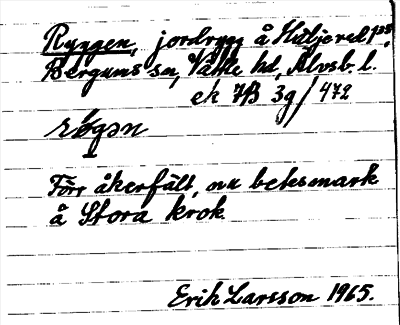 Ryggen, jordrygg å Hultered, ps
Bergums sn, Vättle hd, Älvsb. l.
ek 7B 3g/472
Förr åkerfält, nu betesmark
å Stora Krok
Erik Larsson 1965.